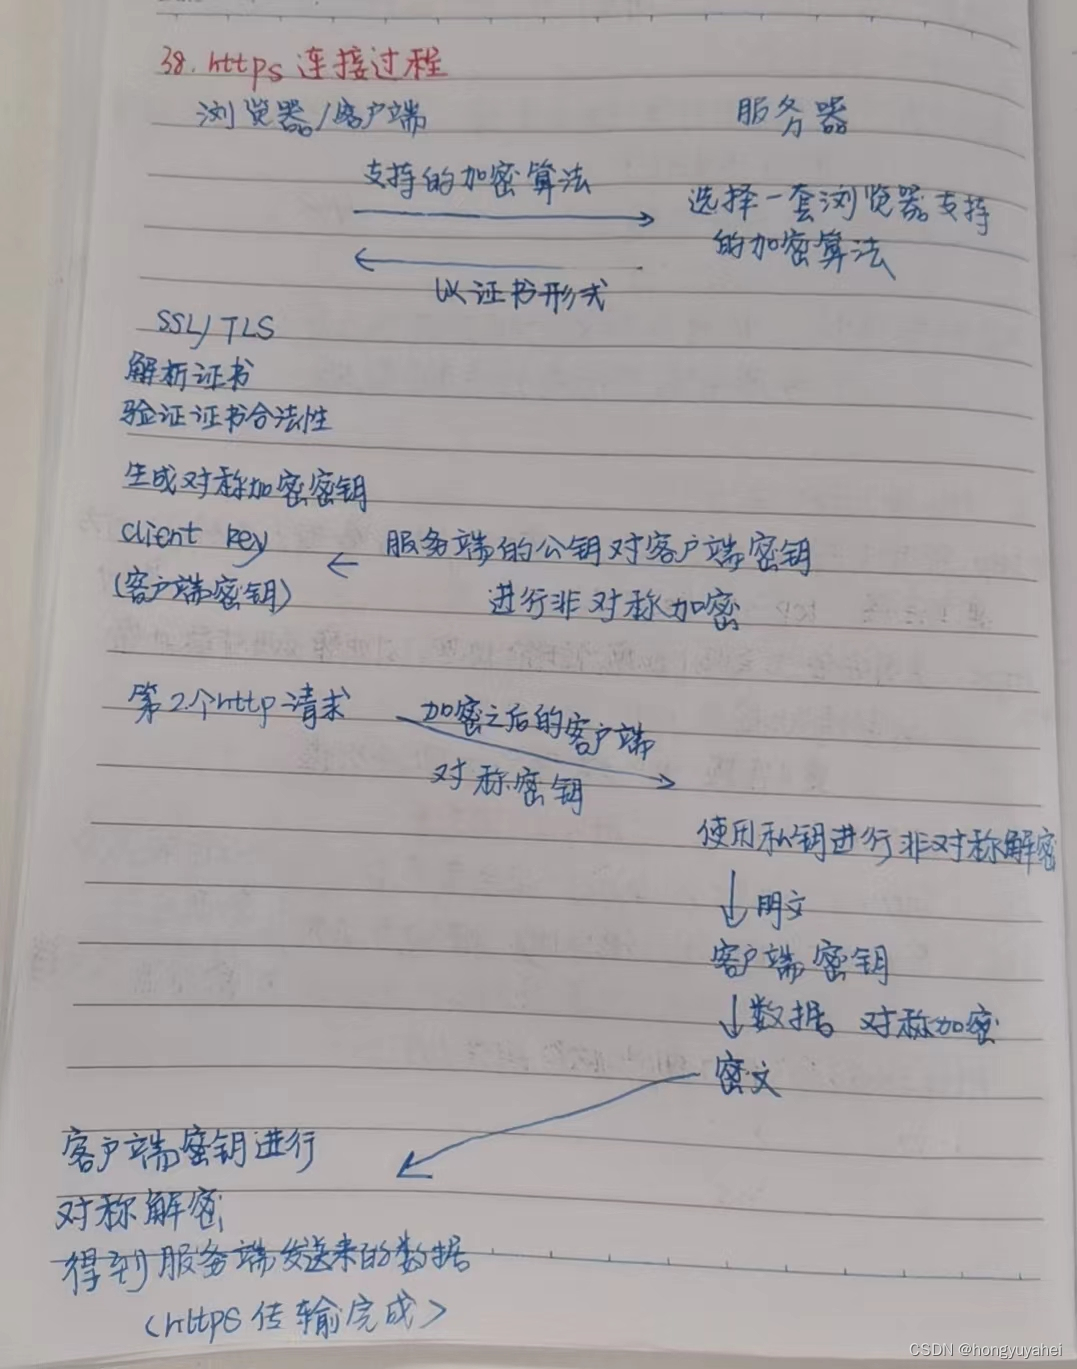 38. https 连接过程
浏览器/客户端 服务器
支持的加密算法
选择一套浏览器支持
的加密算法
以证书形式
SSL/TLS
解析证书
验证证书合法性
生成对称加密密钥
client key
服务端的公钥对客户端密钥
(客户端密钥)
进行非对称加密
第2个http请求
加密之后的客户端
对称密钥
使用私钥进行非对称解密
明文
客户端密钥
数据 对称加密
密文
客户端密钥进行
对称解密
得到服务端发送来的数据
(https传输完成)
CSDN @hongyuyahei